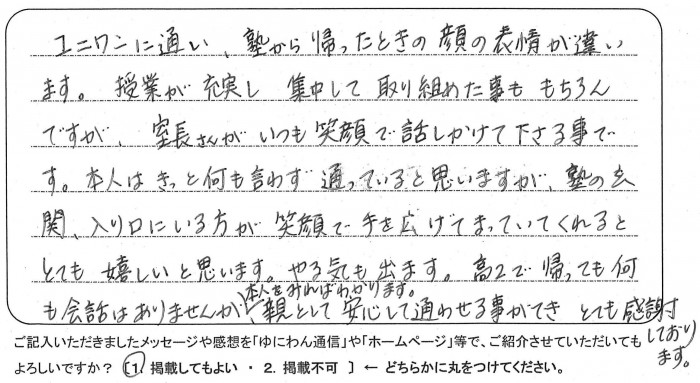 ユニワンに通い、塾から帰ったときの顔の表情が違い
ます。授業が充実し 集中して取り組めた事ももちろん
ですが、室長さんがいつも笑顔で話しかけて下さる事で
す。本人はきっと何も言わず通っていると思いますが、塾の玄
関、入り口にいる方が笑顔で手を広げてまっていてくれると
とても嬉しいと思います。やる気も出ます。高2で帰っても何
本人をみればわかります。
も会話はありませんが、親として安心して通わせる事ができ とても感謝
しており
ます。
ご記入いただきましたメッセージや感想を「ゆにわん通信」や「ホームページ」等で、ご紹介させていただいても
よろしいですか? 〔1. 掲載してもよい ・ 2. 掲載不可 〕 ← どちらかに丸をつけてください。